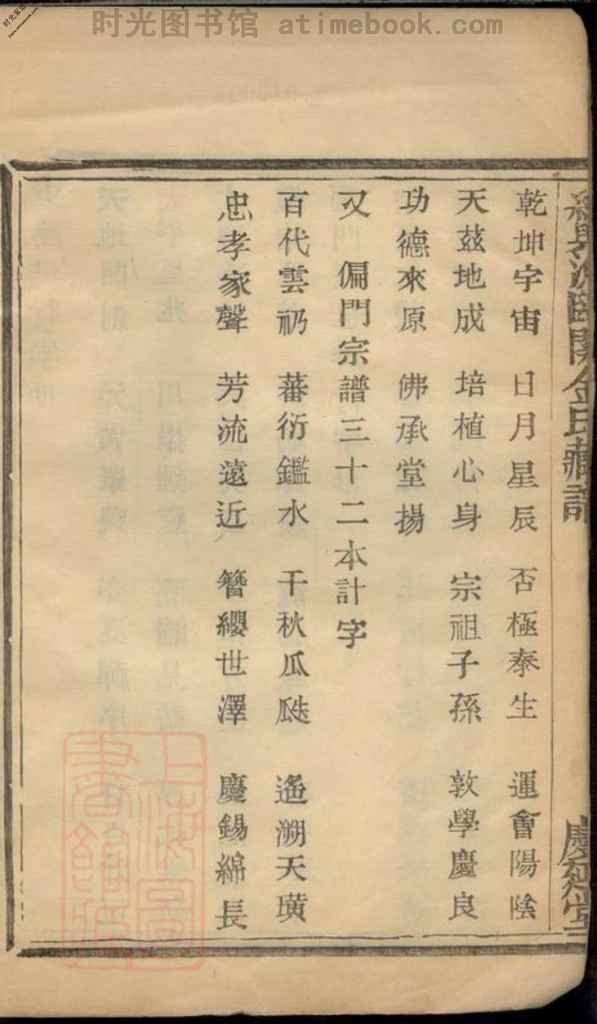 时光图书馆 atimebook.com
乾坤宇宙 日月星辰 否極泰生 運會陽陰
天茲地成 培植心身 宗祖子孫 敦學慶良
功德來原 佛承堂揚
又 偏門宗譜三十二本計字
百代雲礽 蕃衍鑑水 千秋瓜瓞 遙溯天璜
忠孝家聲 芳流遠近 簪纓世澤 慶錫綿長
金氏藏譜
慶延堂